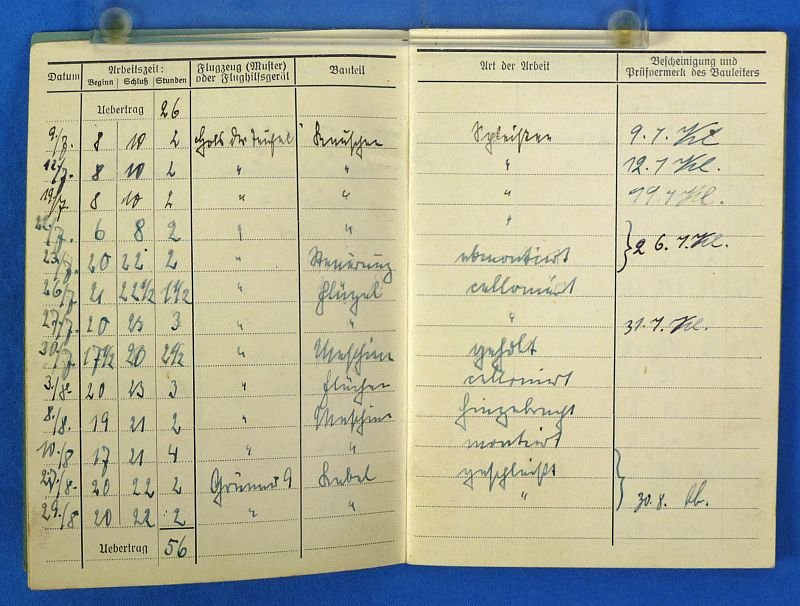 Datum Arbeitszeit: Flugzeug (Muster) oder Flughilfsgerät Bauteil Art der Arbeit Bescheinigung und Prüfvermerk des Bauleiters
Beginn Schluß Stunden
Uebertrag 26
9./7. 8 10 2 9.7. Kl
12./7. 8 10 2 " " " 12.7 Kl.
19./7. 8 10 2 " " " 19.7 Kl.
22./7. 6 8 2 " " "
23./7. 20 22 2 " Steuerung abmontiert 26.7. Kl.
26./7. 21 22½ 1½ " Flügel celloniert
27./7. 20 23 3 " " " 31.7. Kl.
30./7. 17½ 20 2½ " Maschine geholt
3./8. 20 23 3 " celloniert
8./8. 19 21 2 " Maschine
10./8 17 21 4 " " montiert
27./8. 20 22 2 Grunau 9 Kabel
29./8 20 22 2 " " " 30.8.
Uebertrag 56